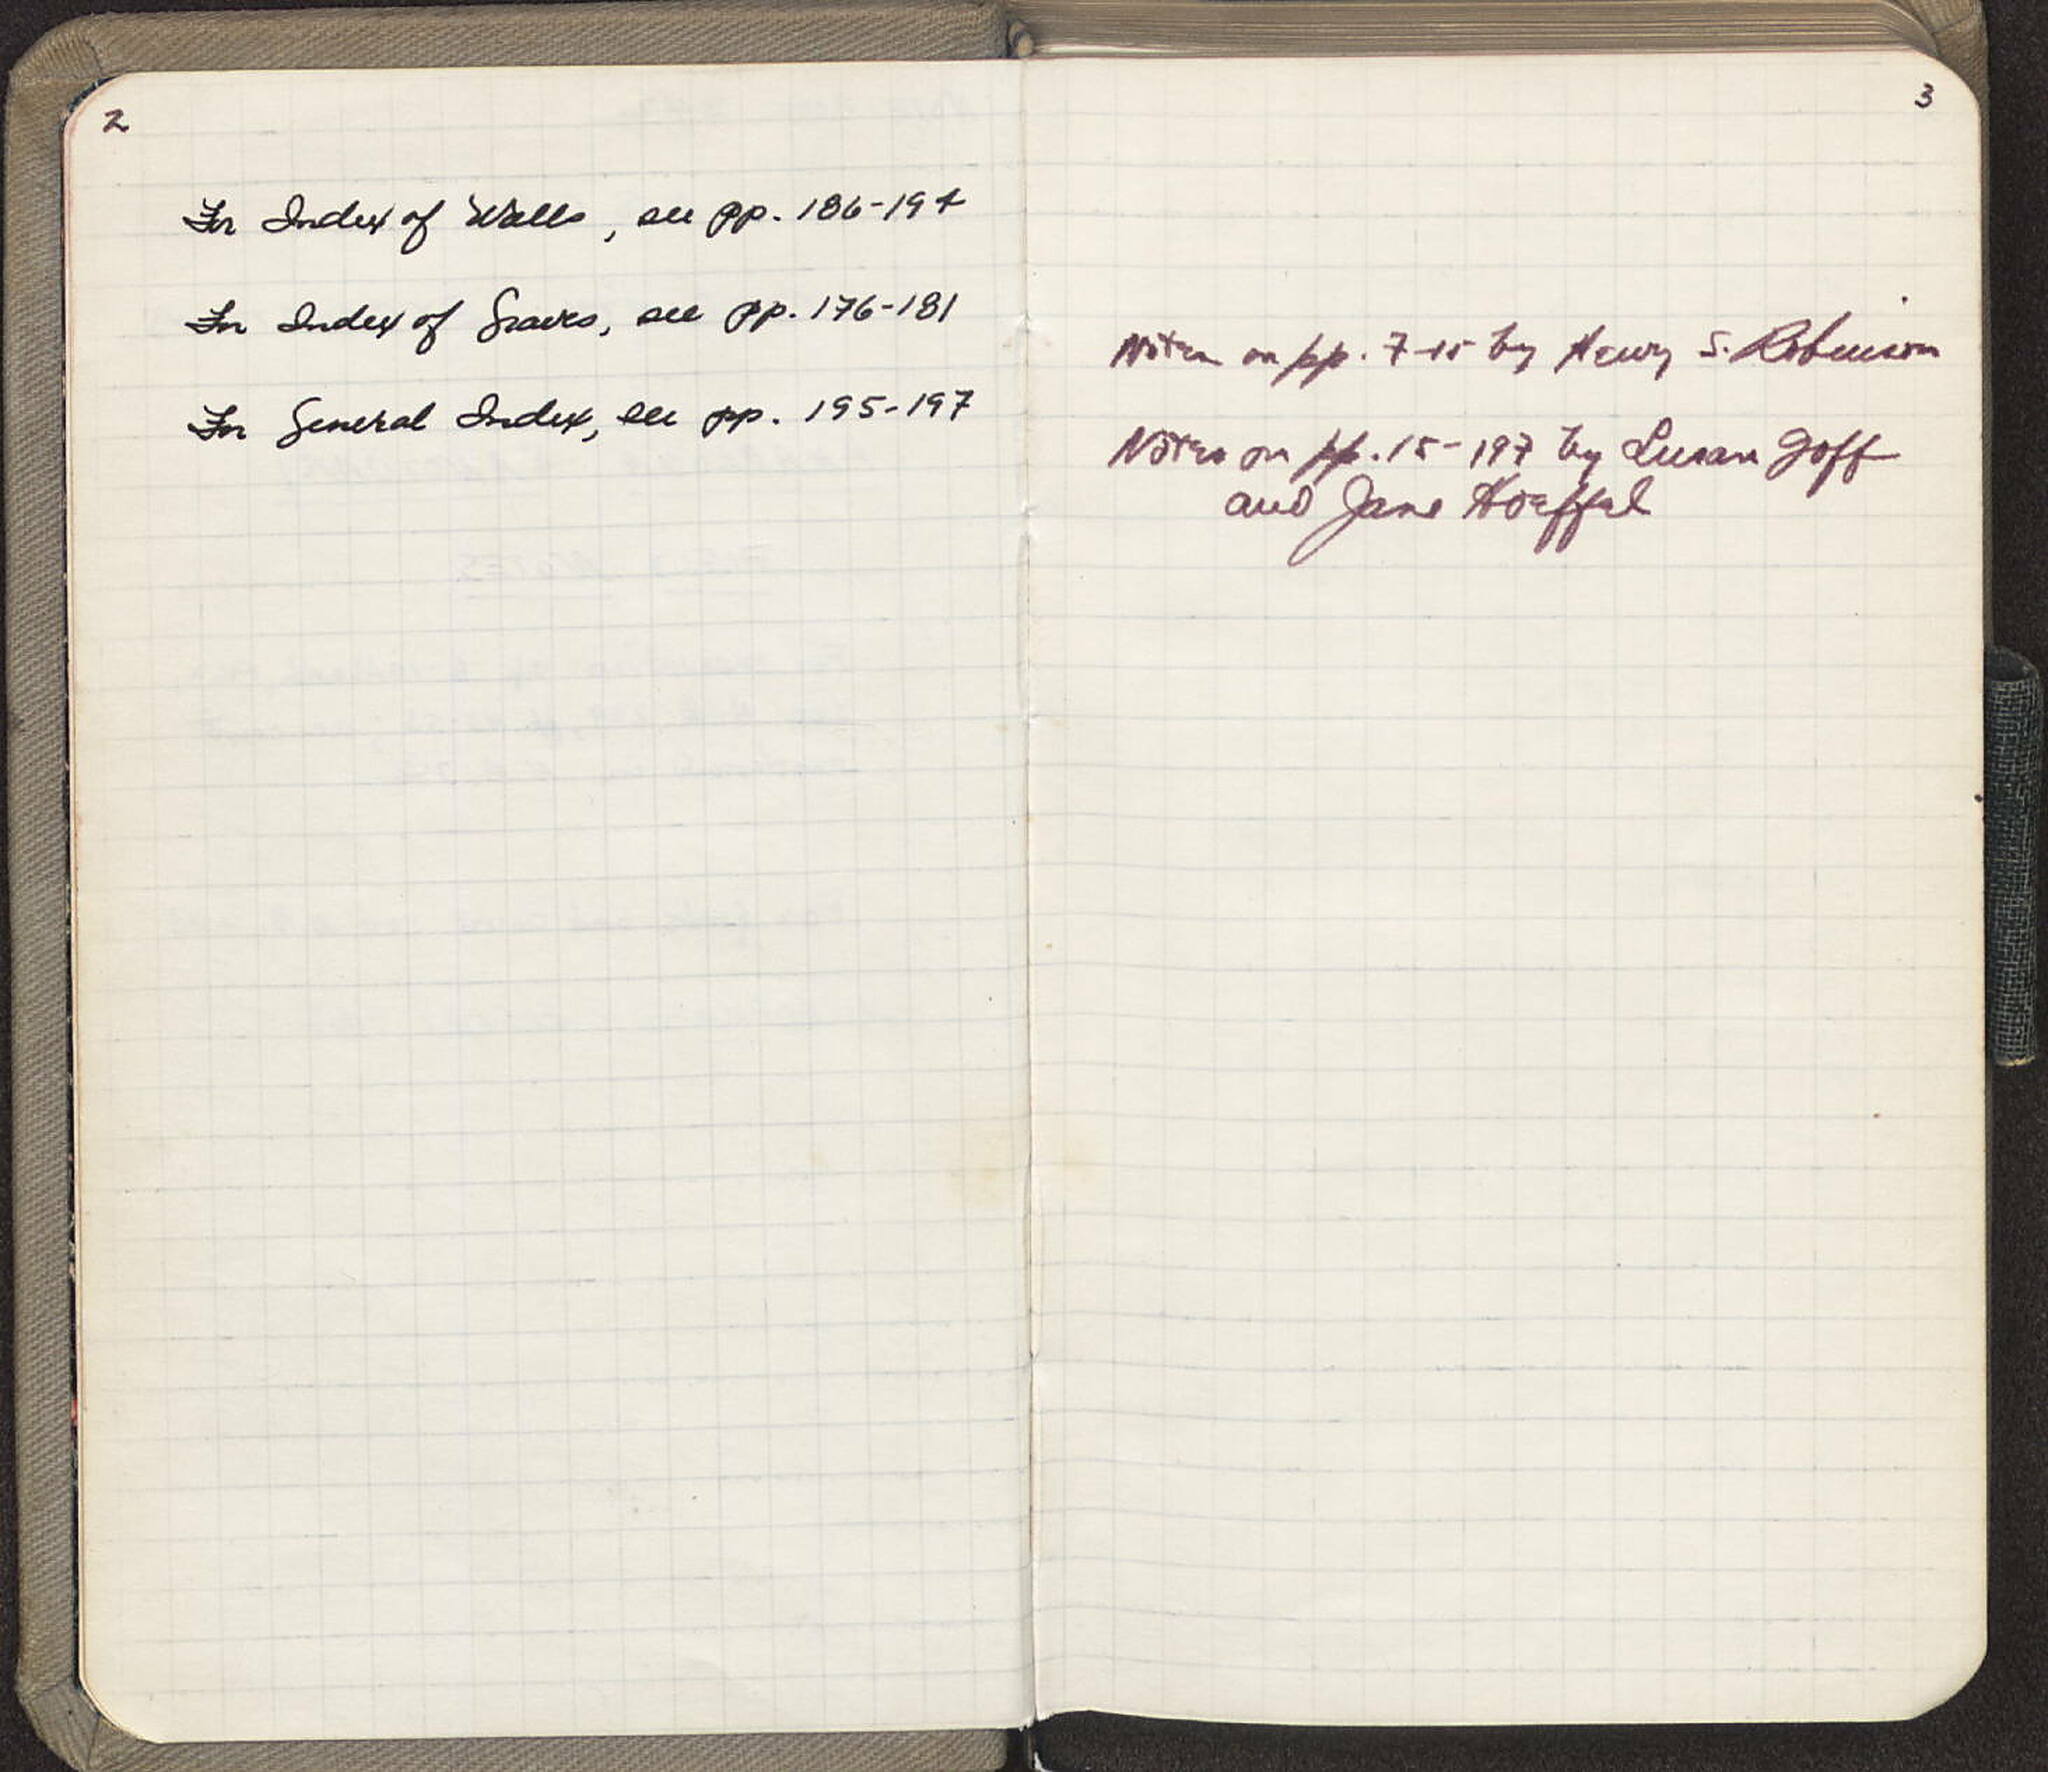 2
For Index of Walls, see pp. 186-194
For Index of Graves, see pp. 176-181
For General Index, see pp. 195-197
3
Notes on pp. 7-15 by Henry S. Robinson
Notes on pp. 15-197 by Susan Goff
and Jane Hoeffel